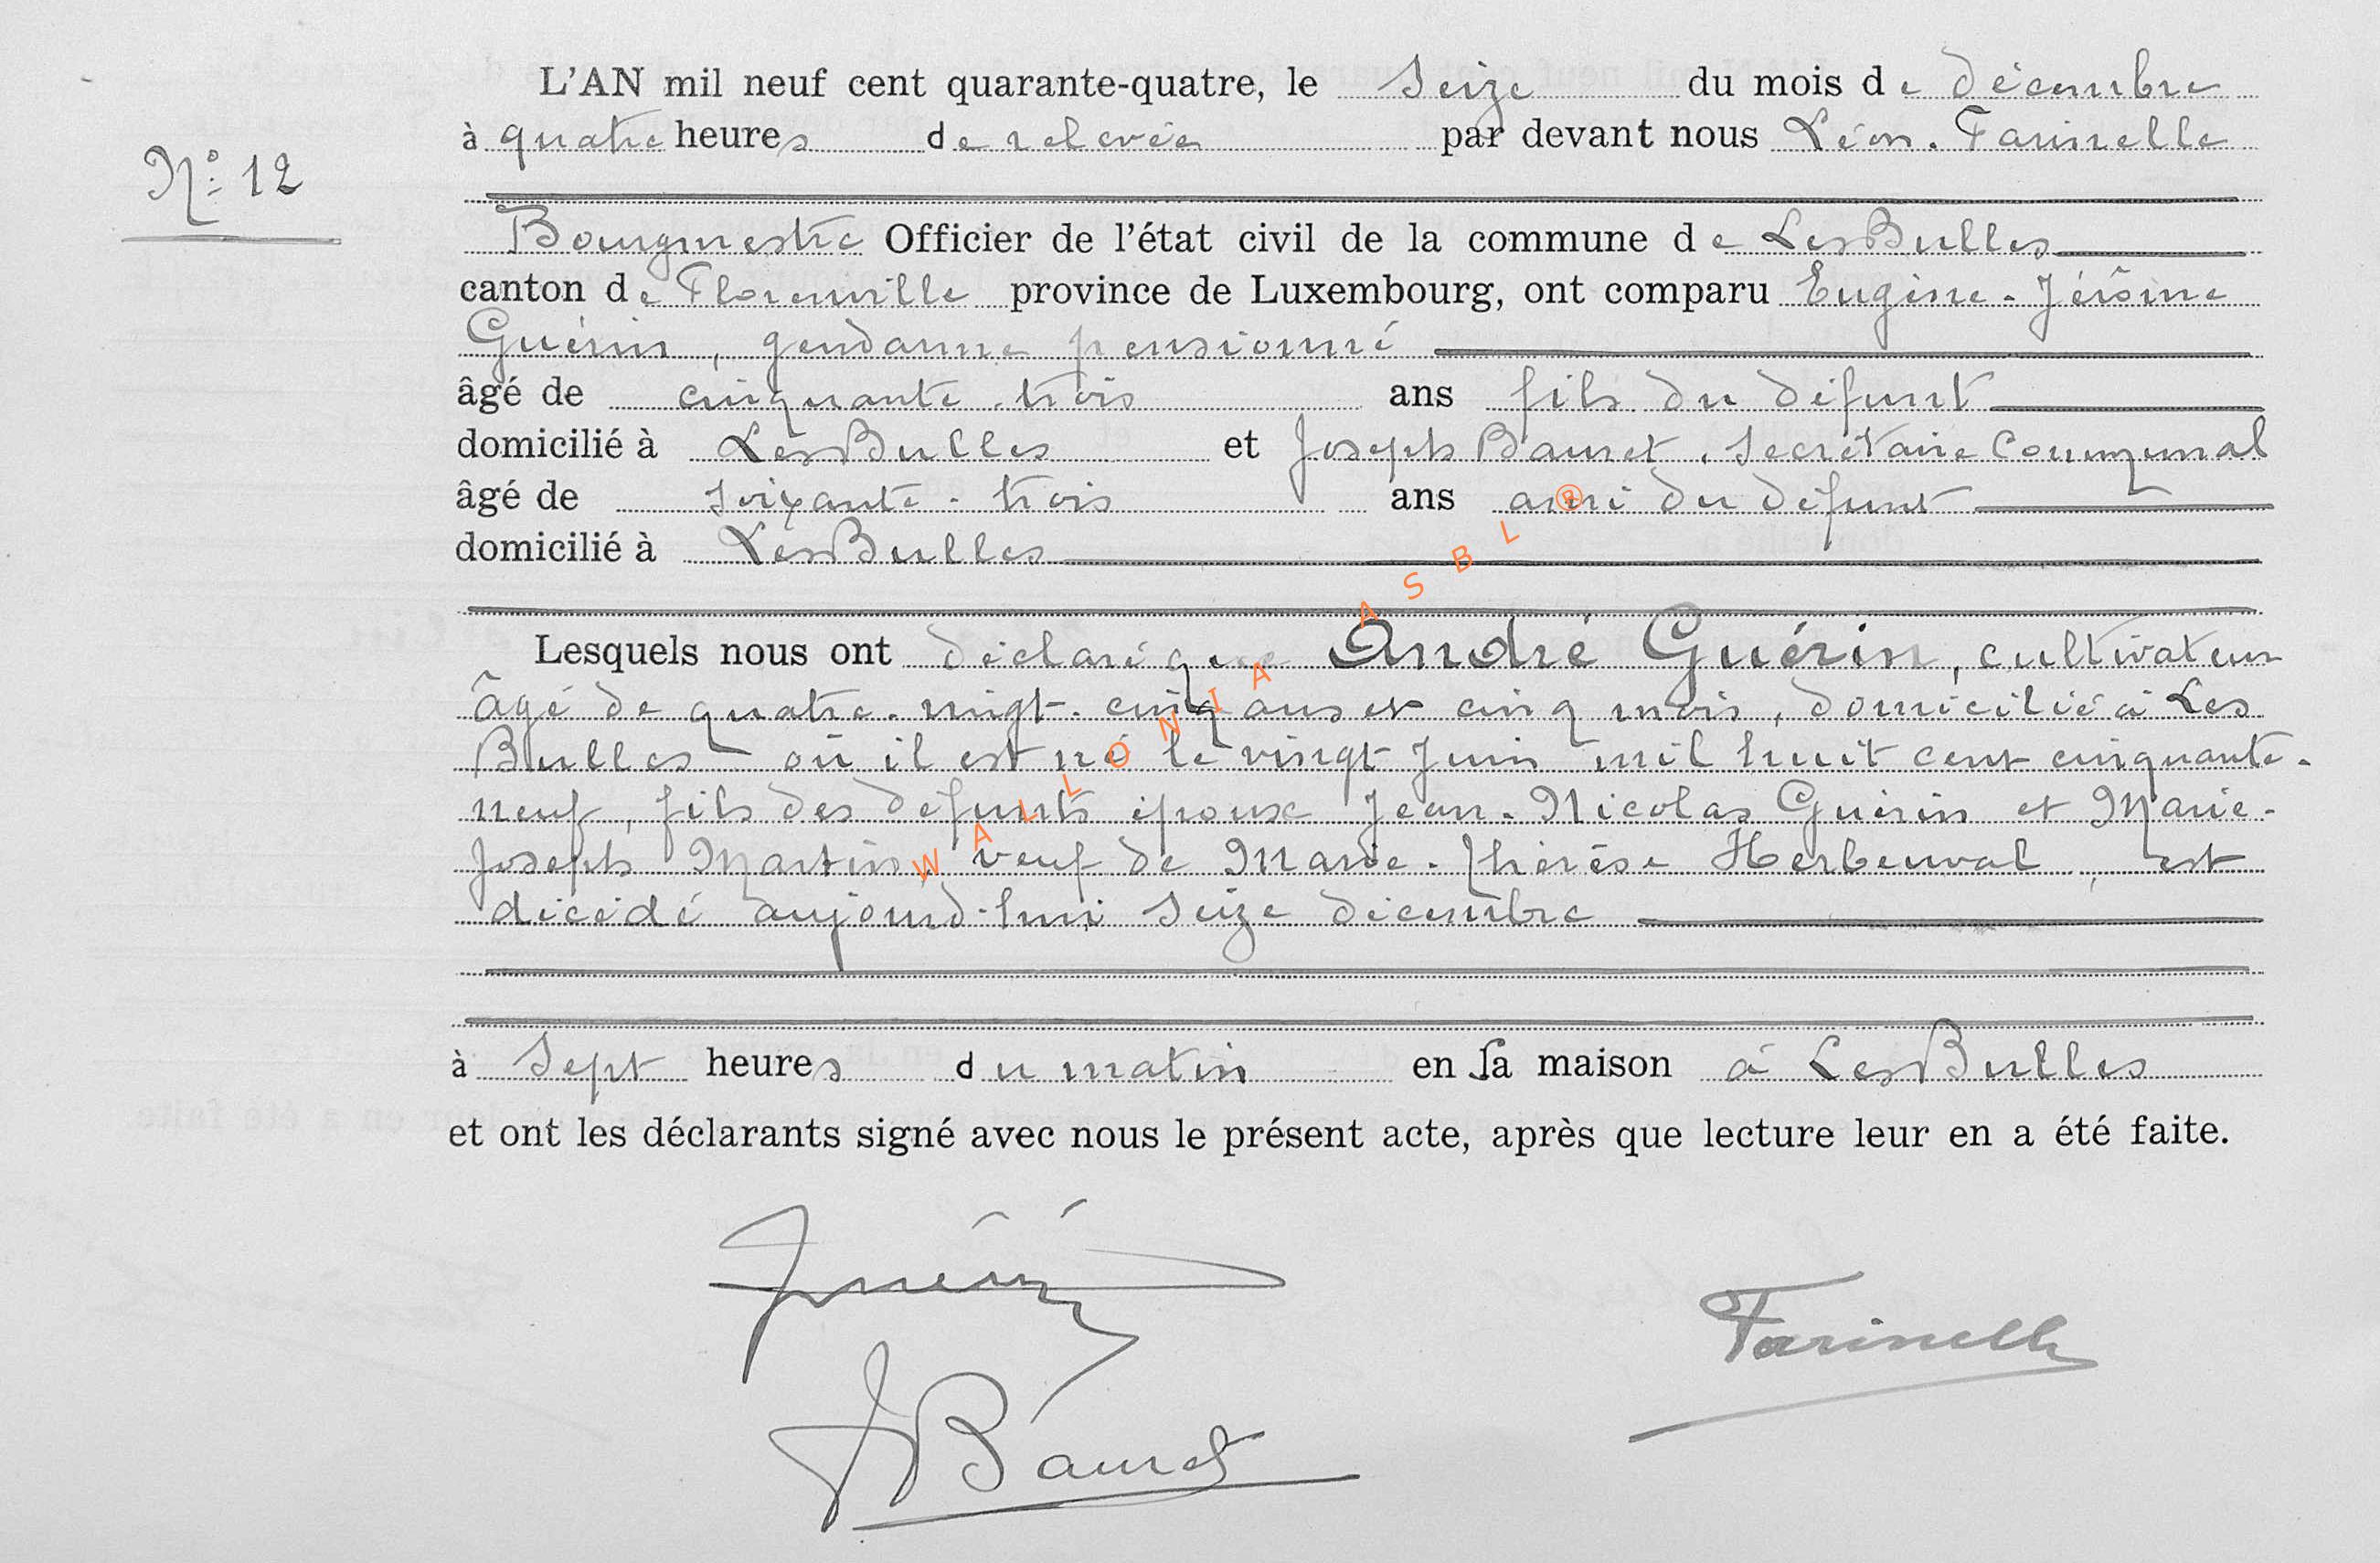 L'AN mil neuf cent quarante-quatre, le Seize du mois de décembre
à quatre heures de relevée par devant nous Léon. Farinelle
N° 12
Bourgmestre Officier de l'état civil de la commune de LesBulles
canton de Florenville province de Luxembourg, ont comparu Eugène-Jérôme
Guérin, gendarme pensionné
âgé de cinquante-trois ans fils du défunt
domicilié à LesBulles et Joseph Bauret, Secrétaire Communal
âgé de soixante-trois ans ami du défunt
domicilié à LesBulles
Lesquels nous ont déclaré que André Guérin, cultivateur
âgé de quatre-vingt-cinq ans et cinq mois, domicilié à Les
Bulles où il est né le vingt Juin mil huit cent cinquante-
neuf, fils des défunts époux Jean-Nicolas Guérin et Marie-
Joseph Martin, veuf de Marie-Thérèse Herbeuval, est
décédé aujourd'hui seize décembre
à Sept heures du matin en sa maison à LesBulles
et ont les déclarants signé avec nous le présent acte, après que lecture leur en a été faite.
Guérin
Farinelle
JBauret
WALLONIA ASBL ®